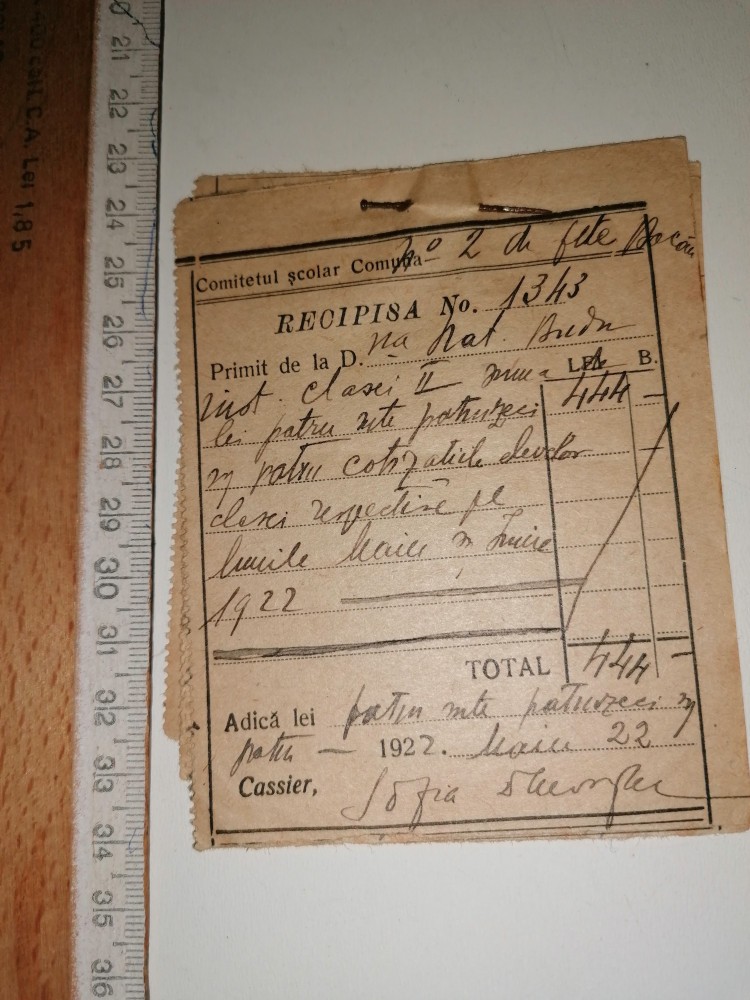 400 col. I.C.A. Lei 1,85
21 22 23 24 25 26 27 28 29 30 31 32 33 34 35 36
Comitetul școlar Comuna No 2 de fete Bacău
RECIPISA No. 1343
Primit de la D. na Nat.
inst. clasei II suma LEI B.
lei patru sute patruzeci 444 —
și patru cotizațiile elevelor
clasei respective pe
lunile Maiu și Iunie
1922
TOTAL 444 —
Adică lei patru sute patruzeci și
patru — 1922. Maiu 22
Cassier, Sofia Gheorghiu